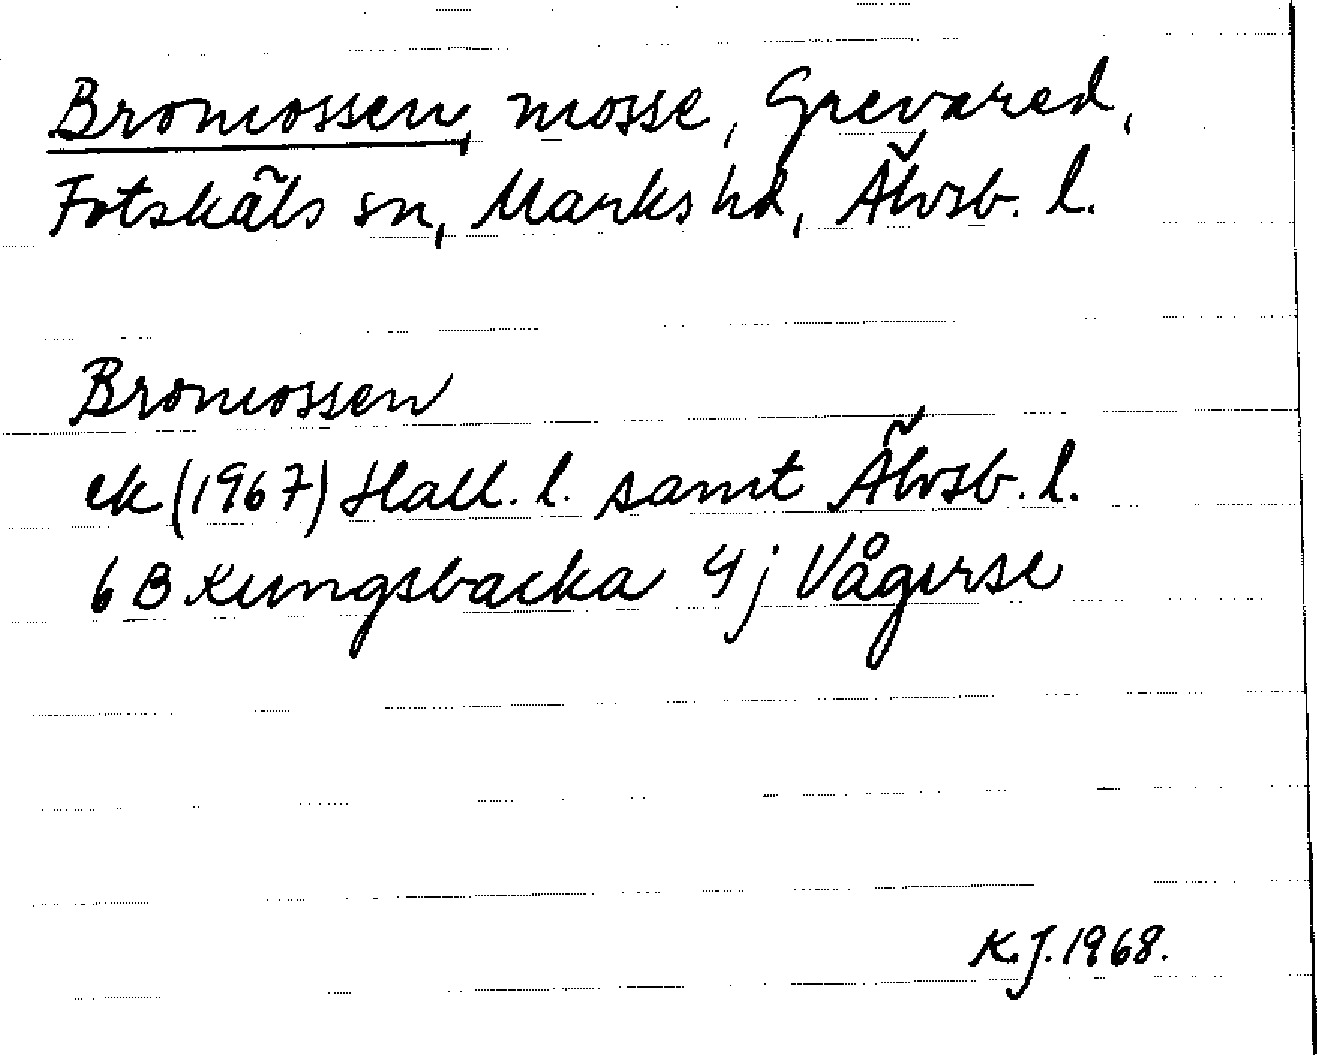 Bromossen, mosse, Grevared,
Fotskäls sn, Marks hd, Älvsb. l.
Bromossen
ek (1967) Hall. l. samt Älvsb. l.
6 B Kungsbacka 4 j Vågerse
K.J. 1968.